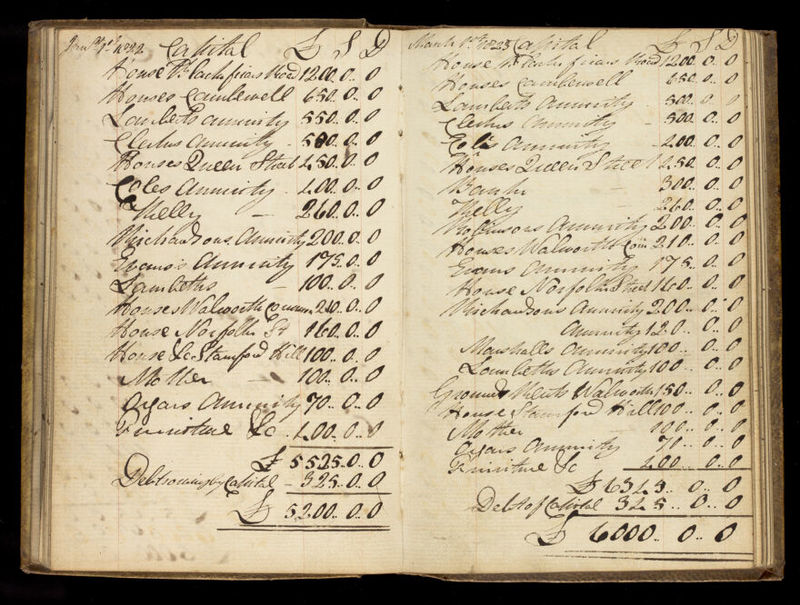 Capital £ S D
House Blackfriars Road 1200.. 0.. 0
Houses Camberwell 650.. 0.. 0
Lambeths Annuity 550.. 0.. 0
Annuity 500.. 0.. 0
Houses Queen Street 250.. 0.. 0
Coles Annuity 200.. 0.. 0
Kelly 260.. 0.. 0
Richardsons Annuity 200.. 0.. 0
Evans's Annuity 175.. 0.. 0
Lambeths 100.. 0.. 0
Houses Walworth Common 210.. 0.. 0
House Norfolk St 160.. 0.. 0
House &c Stamford Hill 100.. 0.. 0
Mother 100.. 0.. 0
Annuity 70.. 0.. 0
Furniture &c 200.. 0.. 0
£ 5525.. 0.. 0
Debts owing by Capital 325.. 0.. 0
£ 5200.. 0.. 0
March 1st Capital £ S D
House Blackfriars Road 1200.. 0.. 0
Houses Camberwell 650.. 0.. 0
Lambeths Annuity 500.. 0.. 0
Annuity 500.. 0.. 0
Coles Annuity 200.. 0.. 0
Houses Queen Street 250.. 0.. 0
300.. 0.. 0
Kelly 260.. 0.. 0
Robinsons Annuity 200.. 0.. 0
Houses Walworth Com 210.. 0.. 0
Evans Annuity 175.. 0.. 0
House Norfolk Street 160.. 0.. 0
Richardsons Annuity 200.. 0.. 0
Annuity 120.. 0.. 0
Marshalls Annuity 100.. 0.. 0
Lambeths Annuity 100.. 0.. 0
Ground Rents Walworth 150.. 0.. 0
House Stamford Hill 100.. 0.. 0
Mother 100.. 0.. 0
Annuity 70.. 0.. 0
Furniture &c 200.. 0.. 0
£ 6325.. 0.. 0
Debts of Capital 325.. 0.. 0
£ 6000.. 0.. 0